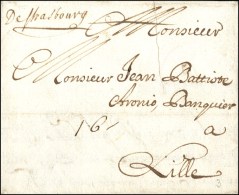 De Strasbourg
Monsieur
Monsieur Jean Battiste
Aronio, Banquier
16
a
Lille